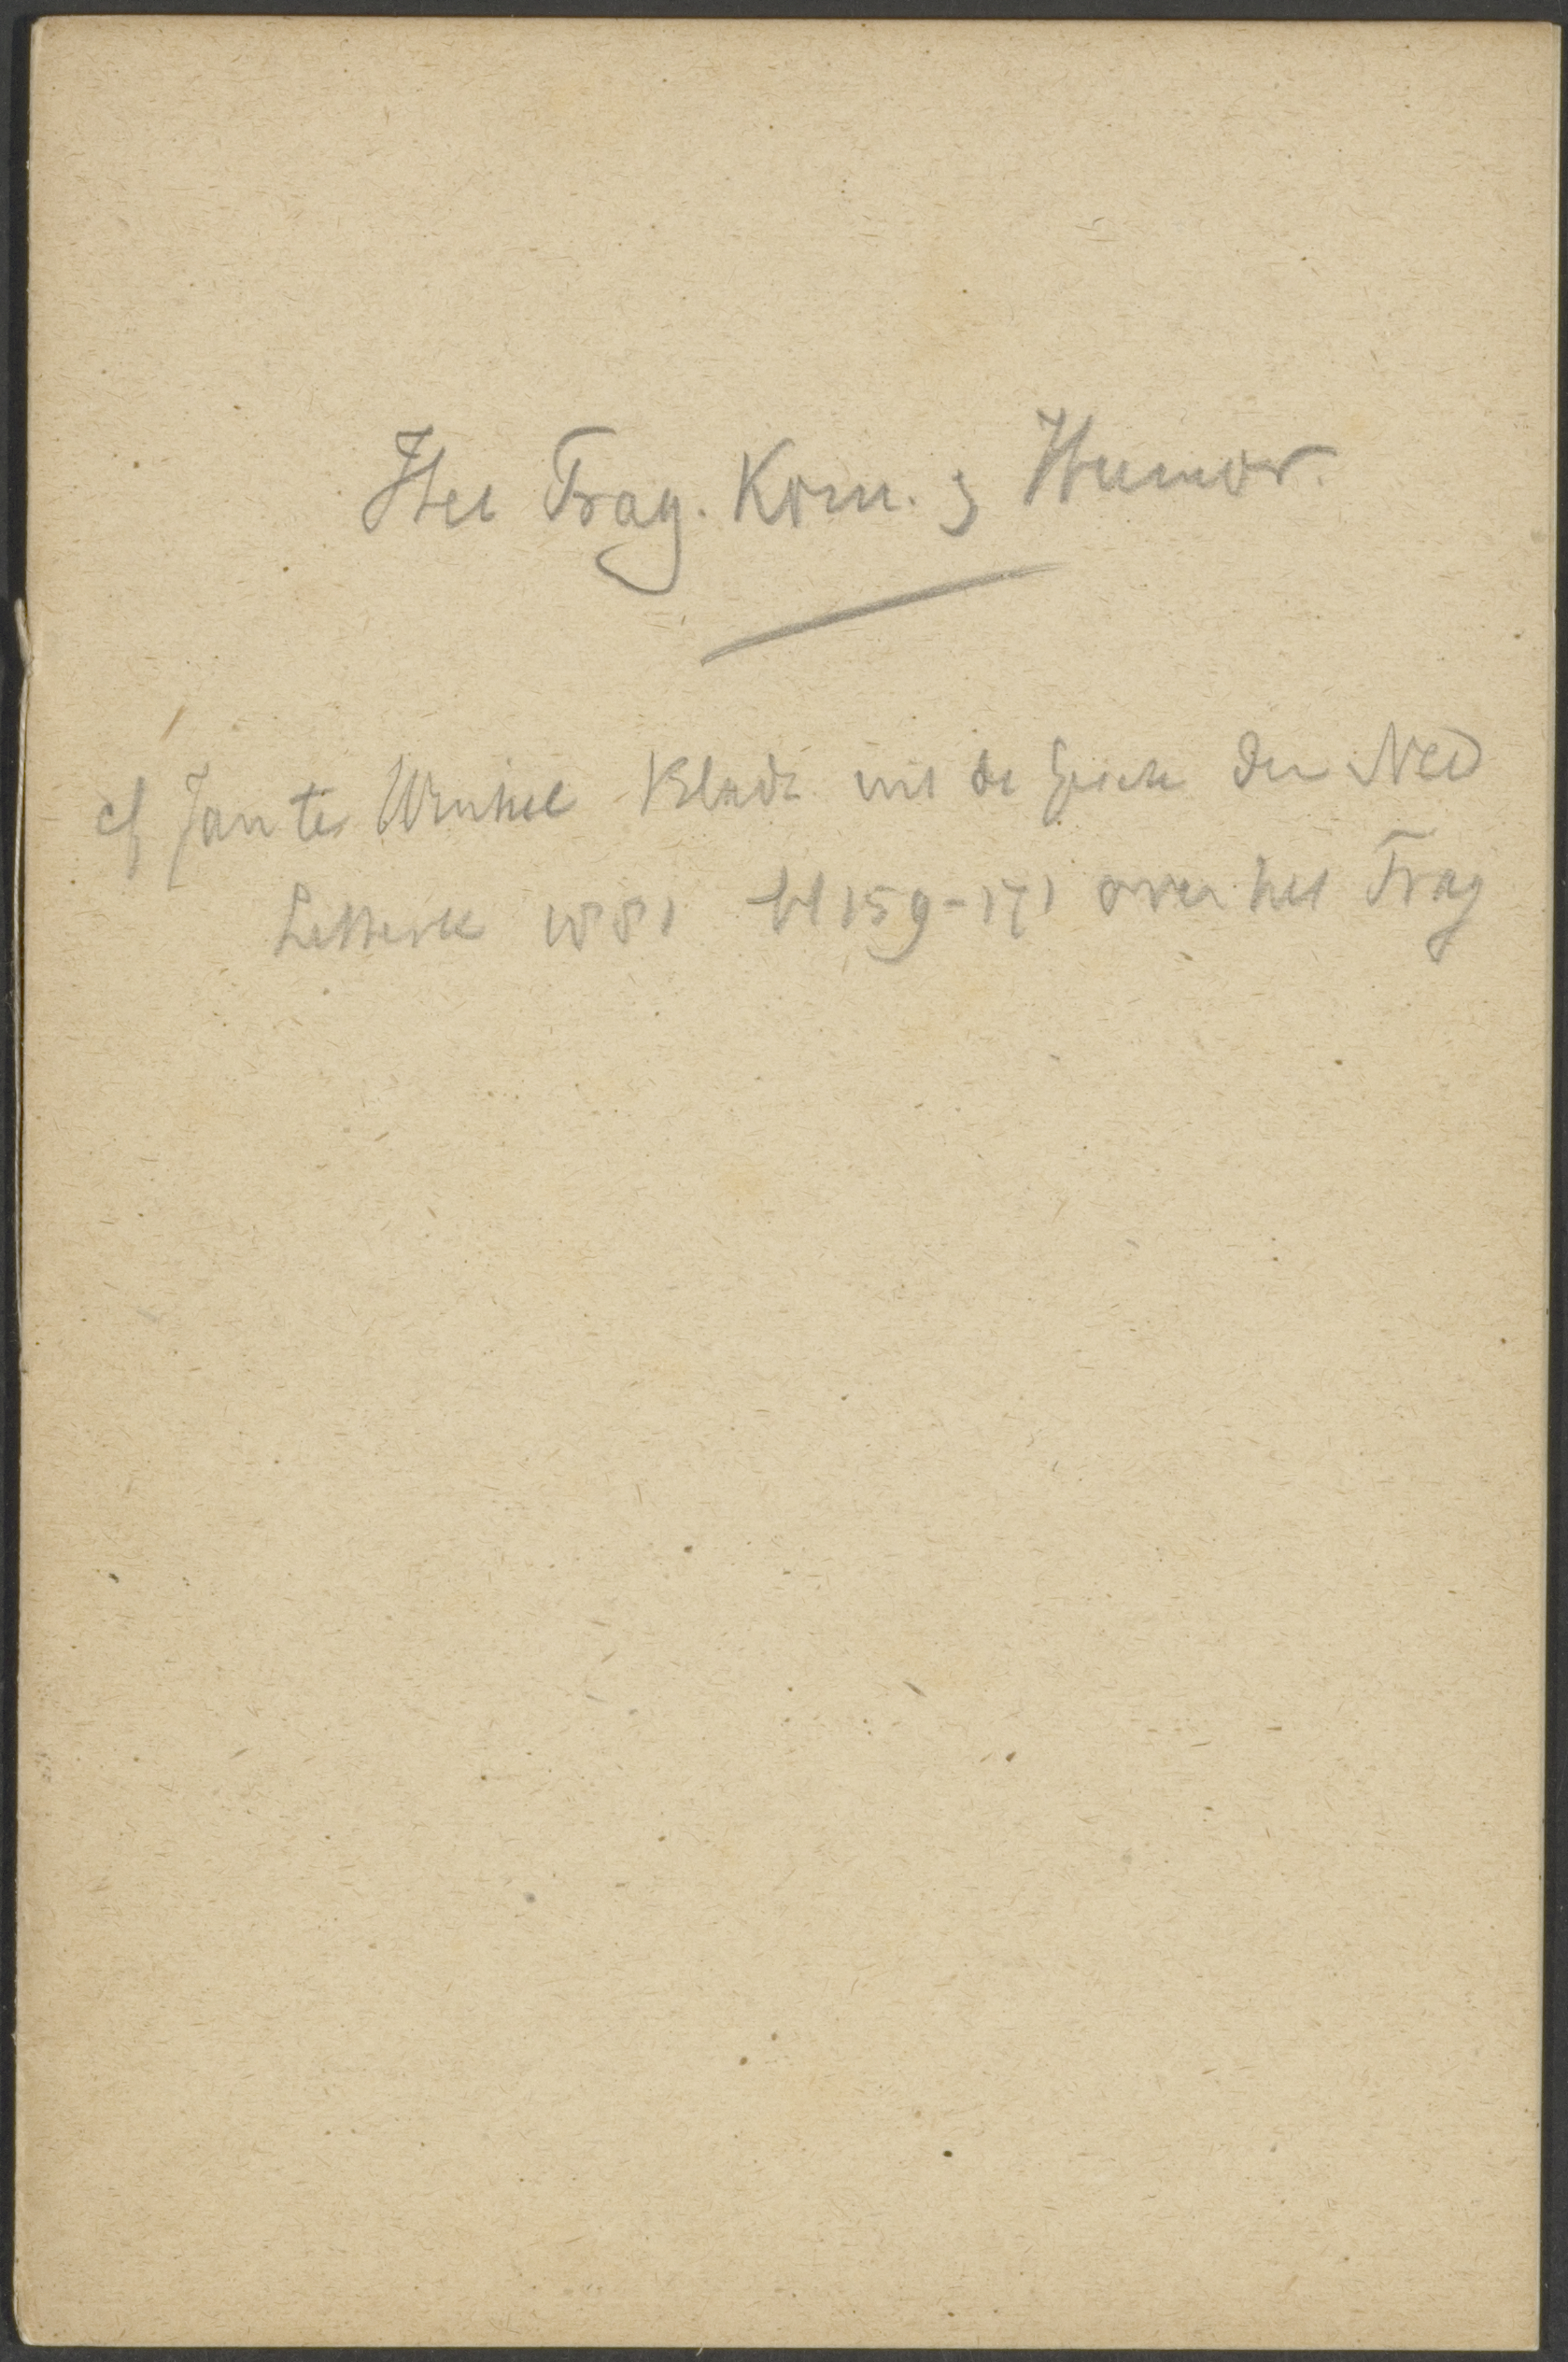 Het Trag. Kom. & Humor.
cf Jan te Winkel Bladz. uit de Gesch der Ned
Letterk 1881 bl 159-171 over het Trag